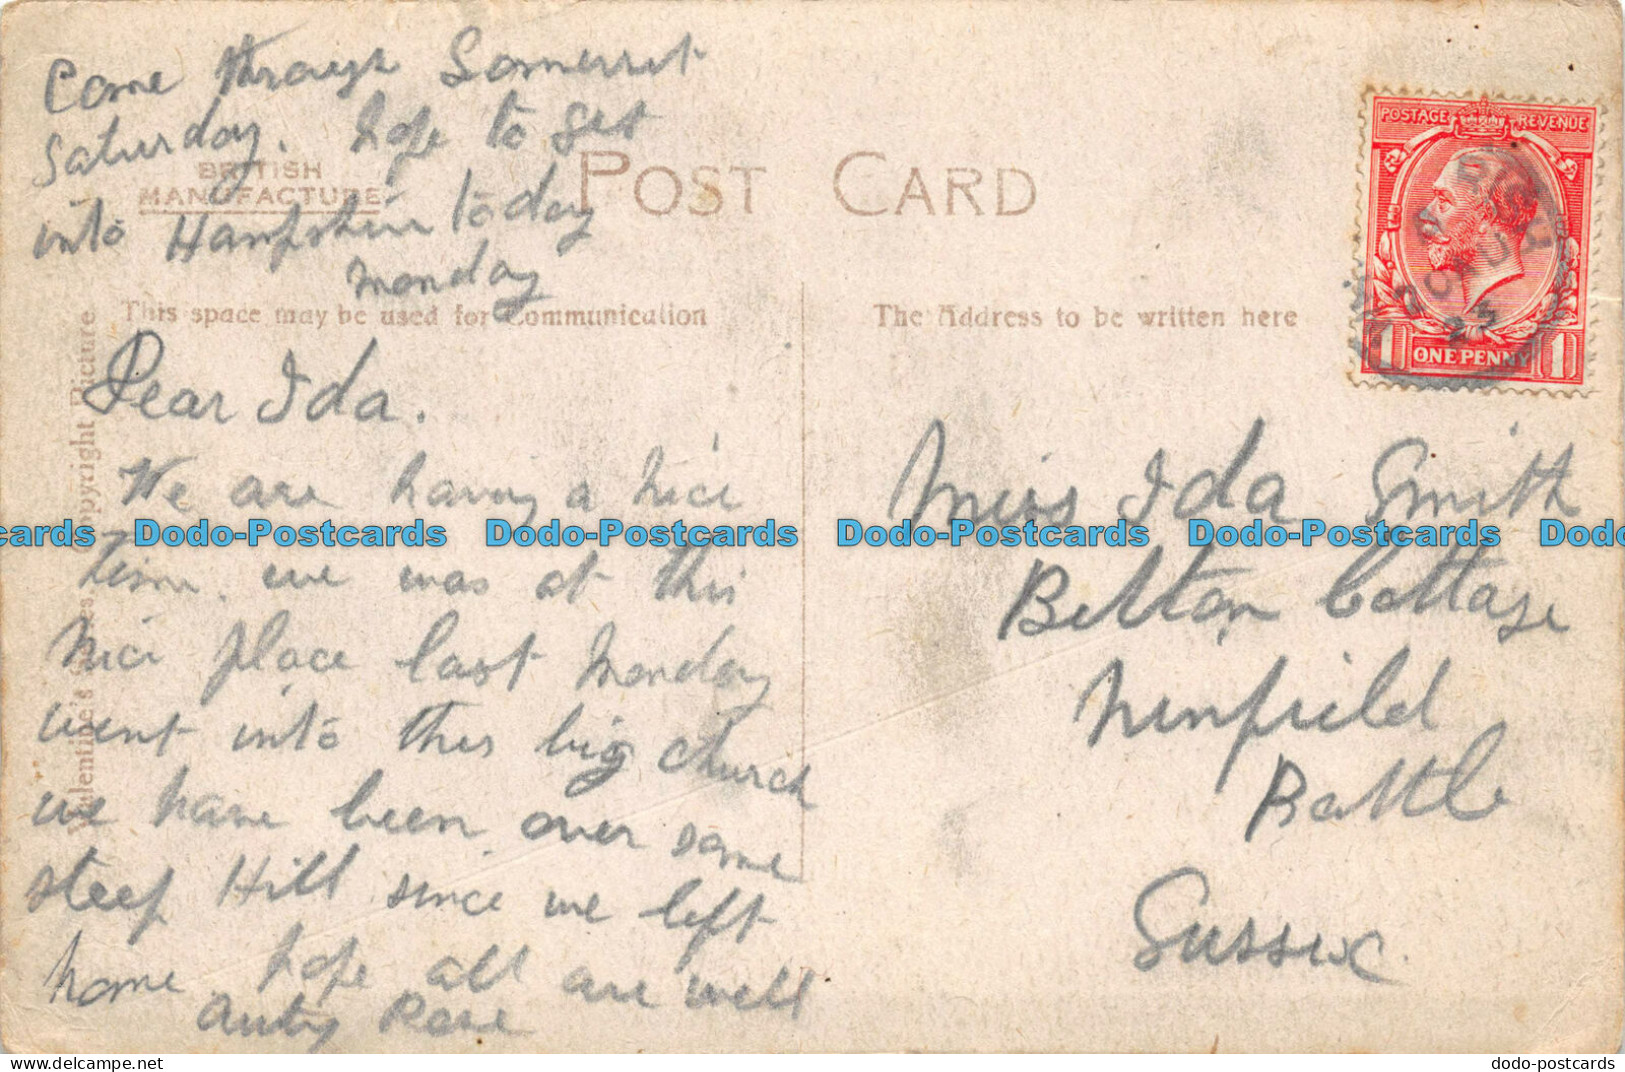 Come through Somerset
Saturday. hope to get
into Hampshire today
monday
BRITISH
MANUFACTURE
POST CARD
This space may be used for Communication
The Address to be written here
POSTAGE REVENUE
1 ONE PENNY 1
Valentine's Series Copyright Picture
Dear Ida.
We are having a nice
time. we was at this
nice place last Monday
went into this big church
we have been over some
steep Hill since we left
home hope all are well
Auty Rose
Miss Ida Smith
Belton Cottage
Ninfield
Battle
Sussex
Dodo-Postcards Dodo-Postcards Dodo-Postcards Dodo-Postcards Dodo-Postcards
dodo-postcards dodo-postcards.com